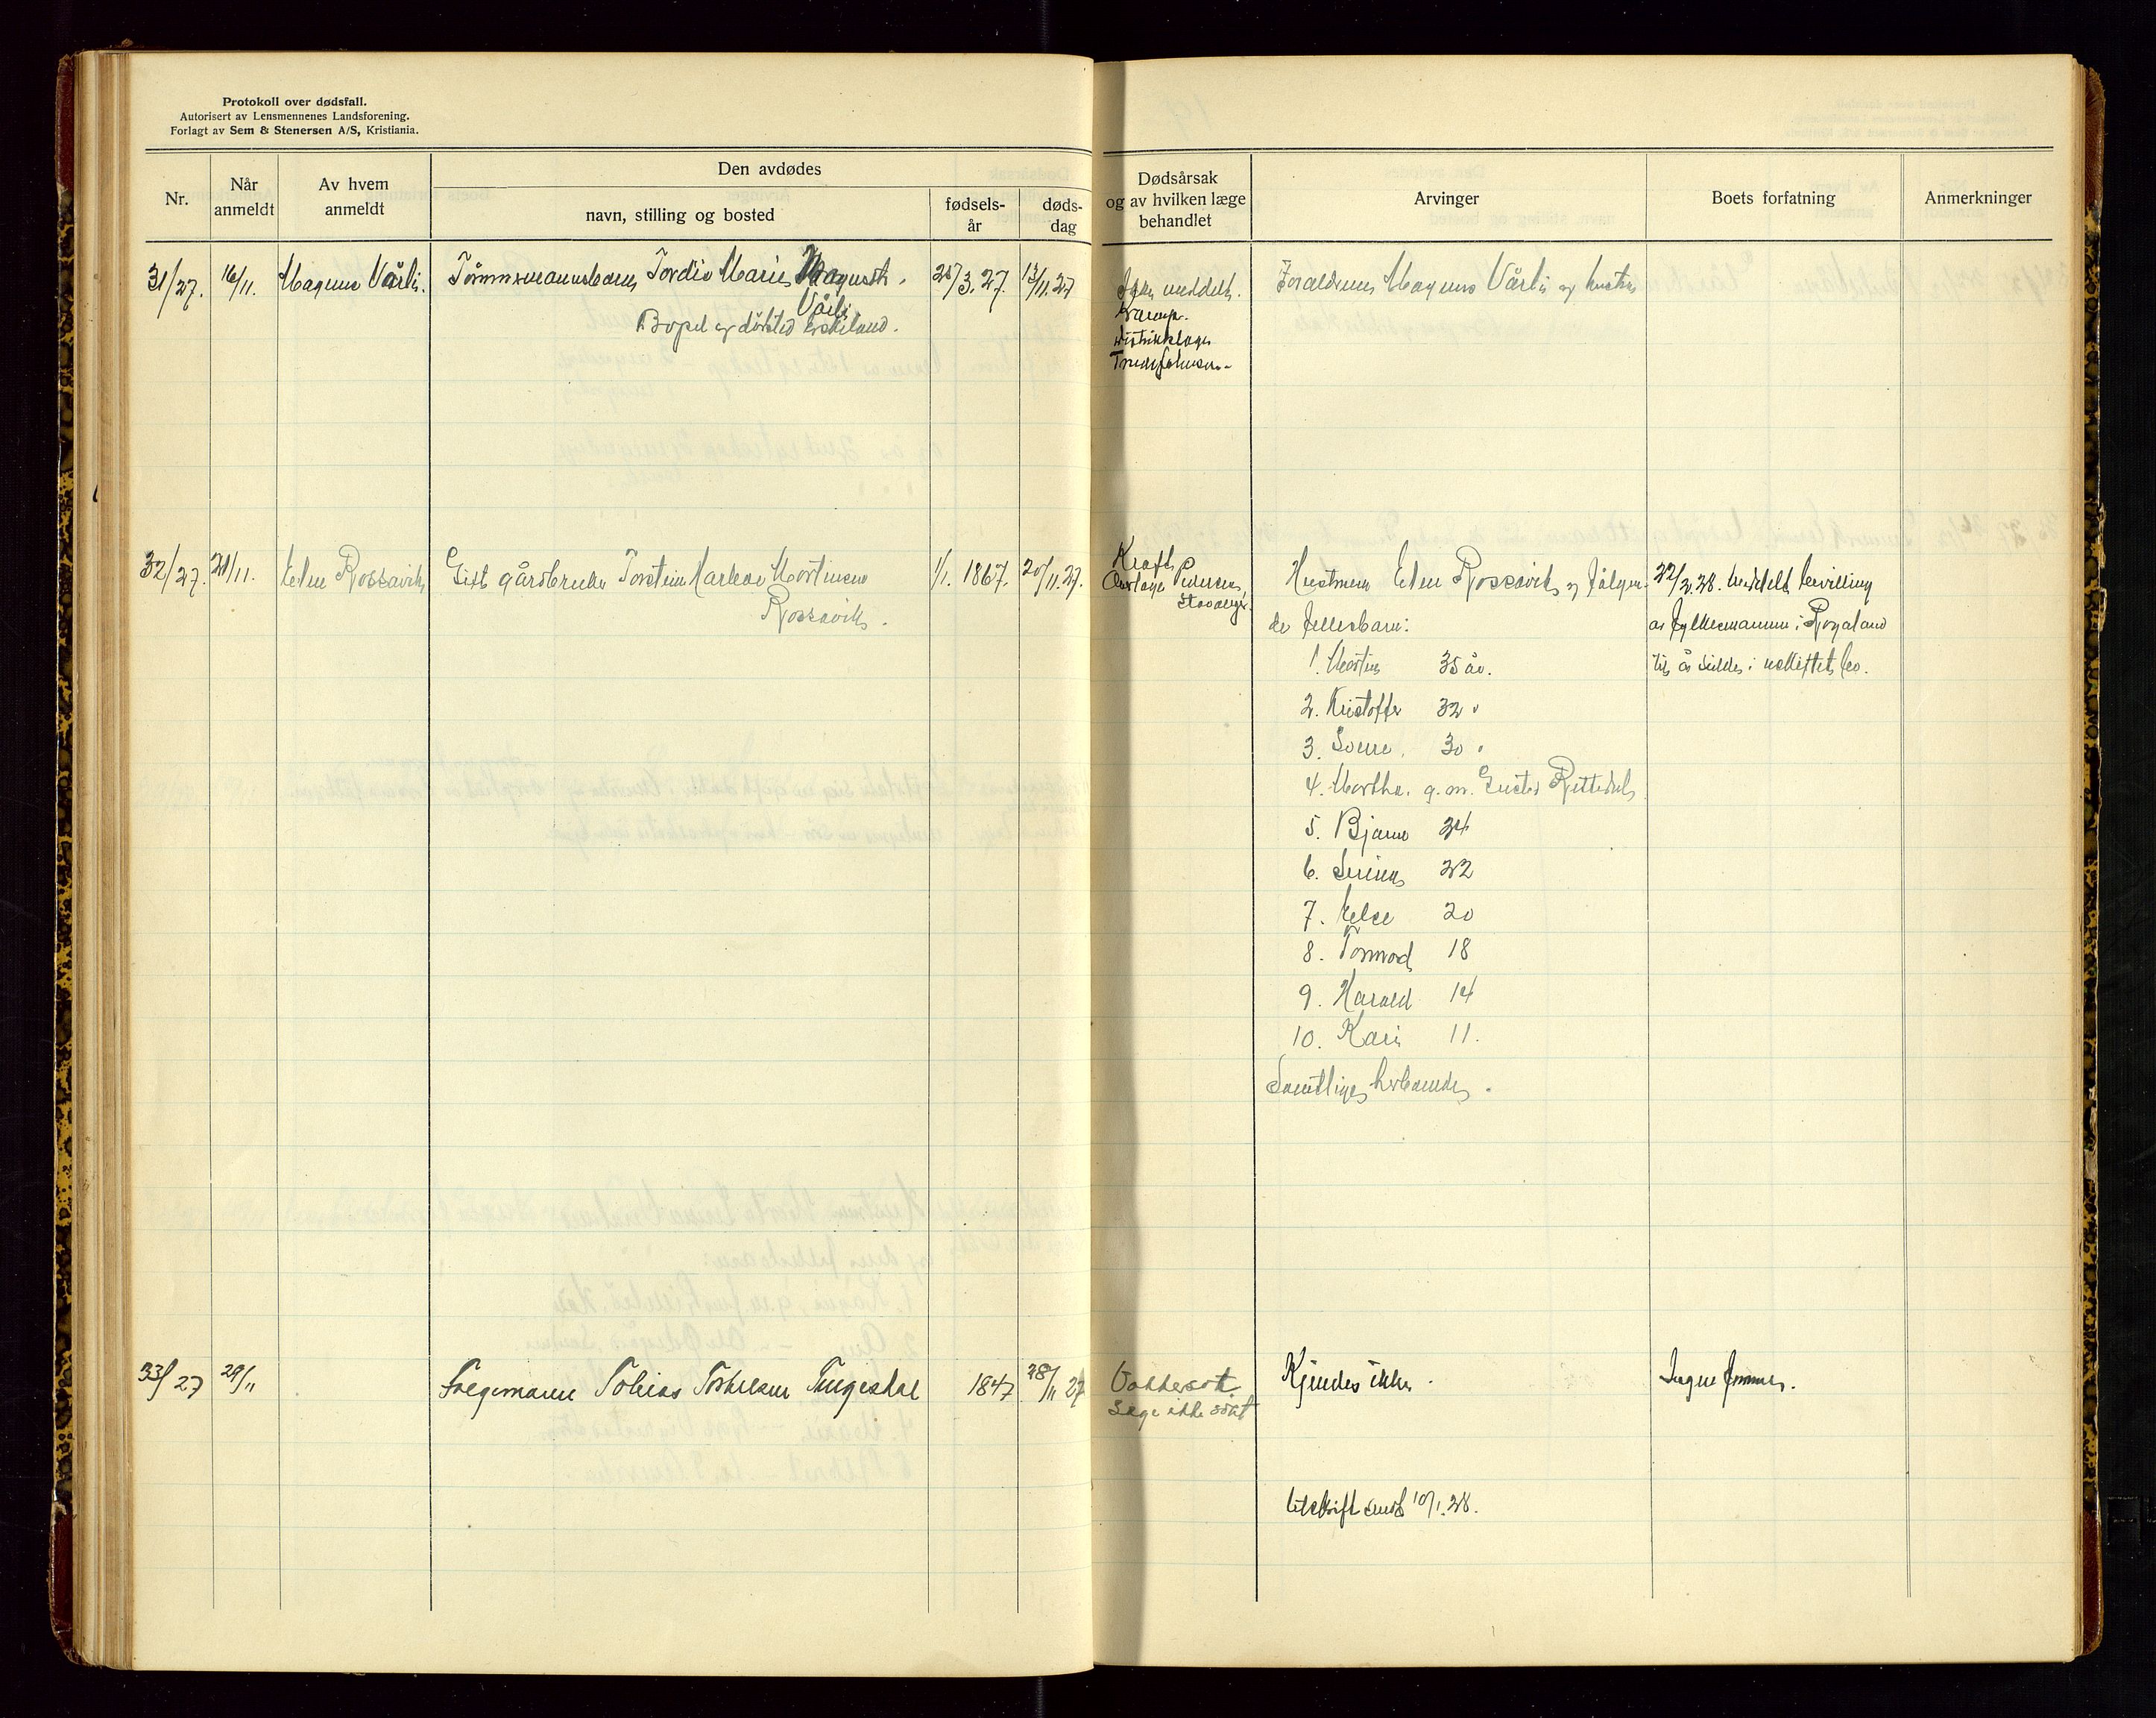 Protokoll over dødsfall.
Autorisert av Lensmennenes Landsforening.
Forlagt av Sem & Stenersen A/S, Kristiania.
Nr.
Når anmeldt
Av hvem anmeldt
Den avdødes
navn, stilling og bosted
fødsels-år
døds-dag
Dødsårsak og av hvilken læge behandlet
Arvinger
Boets forfatning
Anmerkninger
31/27. 16/11. Magnus Vårli. Tømmermannsbarn Tordis Marie Magnusdt. 25/3.27. 13/11.27
Vårli
Bopel og dørsted Eskeland.
Ikke meddelt.
Krampe.
distriktslæge
Foreldrene Magnus Vårli og hustru
32/27. 21/11. Elen Rossavik Gift gårdbruker Torstein Martinsen 1/1. 1867. 20/11.27.
Rossavik.
Kreft
Overlæge Pedersen,
Stavanger.
Hustruen Elen Rossavik og følgen-
de fellesbarn:
1. Martin 35 år.
2. Kristoffer 32 "
3. Sverre. 30 "
4. Martha. g.m. Rettedal
5. Bjarne 24
6. Serina 22
7. Else 20
8. Tormod 18
9. Harald 14
10. Kari 11.
Samtlige herboende.
22/2.28. meddelt bevilling
av fylkesmannen i Rogaland
til å sidde i uskiftet bo.
33/27 29/11 Lægsmann Tobias Torkelsen Tungesdal 1847 28/11 27
Vattersot
Læge ikke søkt
Kjendes ikke.
Ingen formue.
Utskrift sendt 10/1.28.